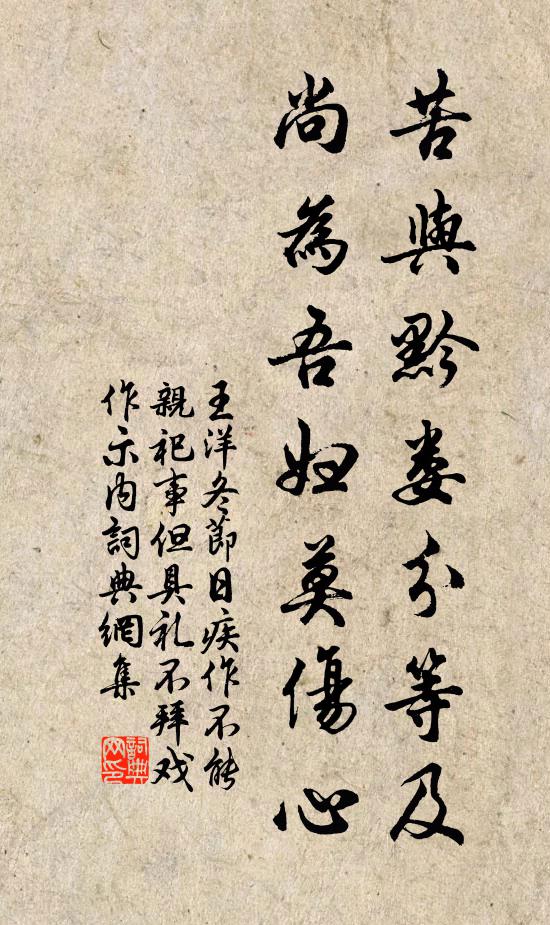 苦與黔婁分等及
尚為吾妇莫傷心
王洋冬節日疾作不能
親祀事但具礼不拜戏
作示内詞典網集
詞典
网印